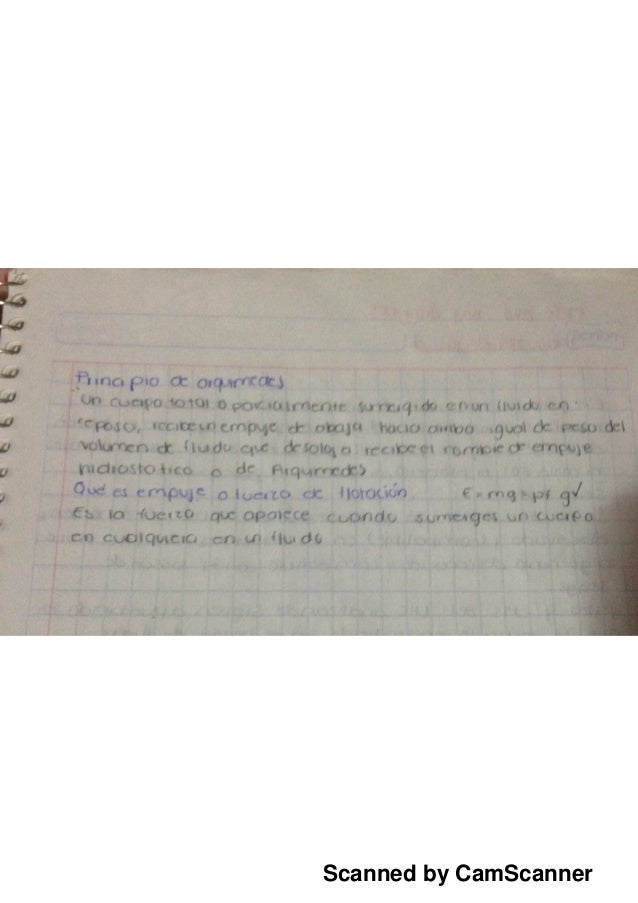 Principio de arquimedes
Un cuerpo total o parcialmente sumergido en un fluido en
reposo, recibe un empuje de abaja hacia arriba igual de peso del
volumen de fluido que desaloja recibe el nombre de empuje
hidrostatico o de Arquimedes
Qué es empuje o fuerza de flotación E=mg=pf gv
Es la fuerza que aparece cuando sumerges un cuerpo
en cualquiera en un fluido
Scanned by CamScanner